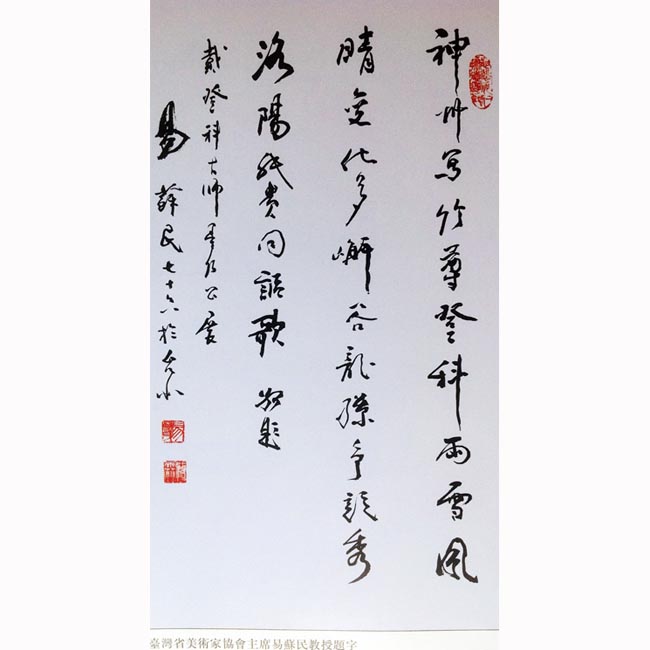 神州写竹尊登科雨雪風
晴變化多嶰谷龍孫爭競秀
洛陽紙貴同謳歌 敬題
戴登科大師墨竹公展
易蘇民七十六於台北
臺灣省美術家協會主席易蘇民教授題字